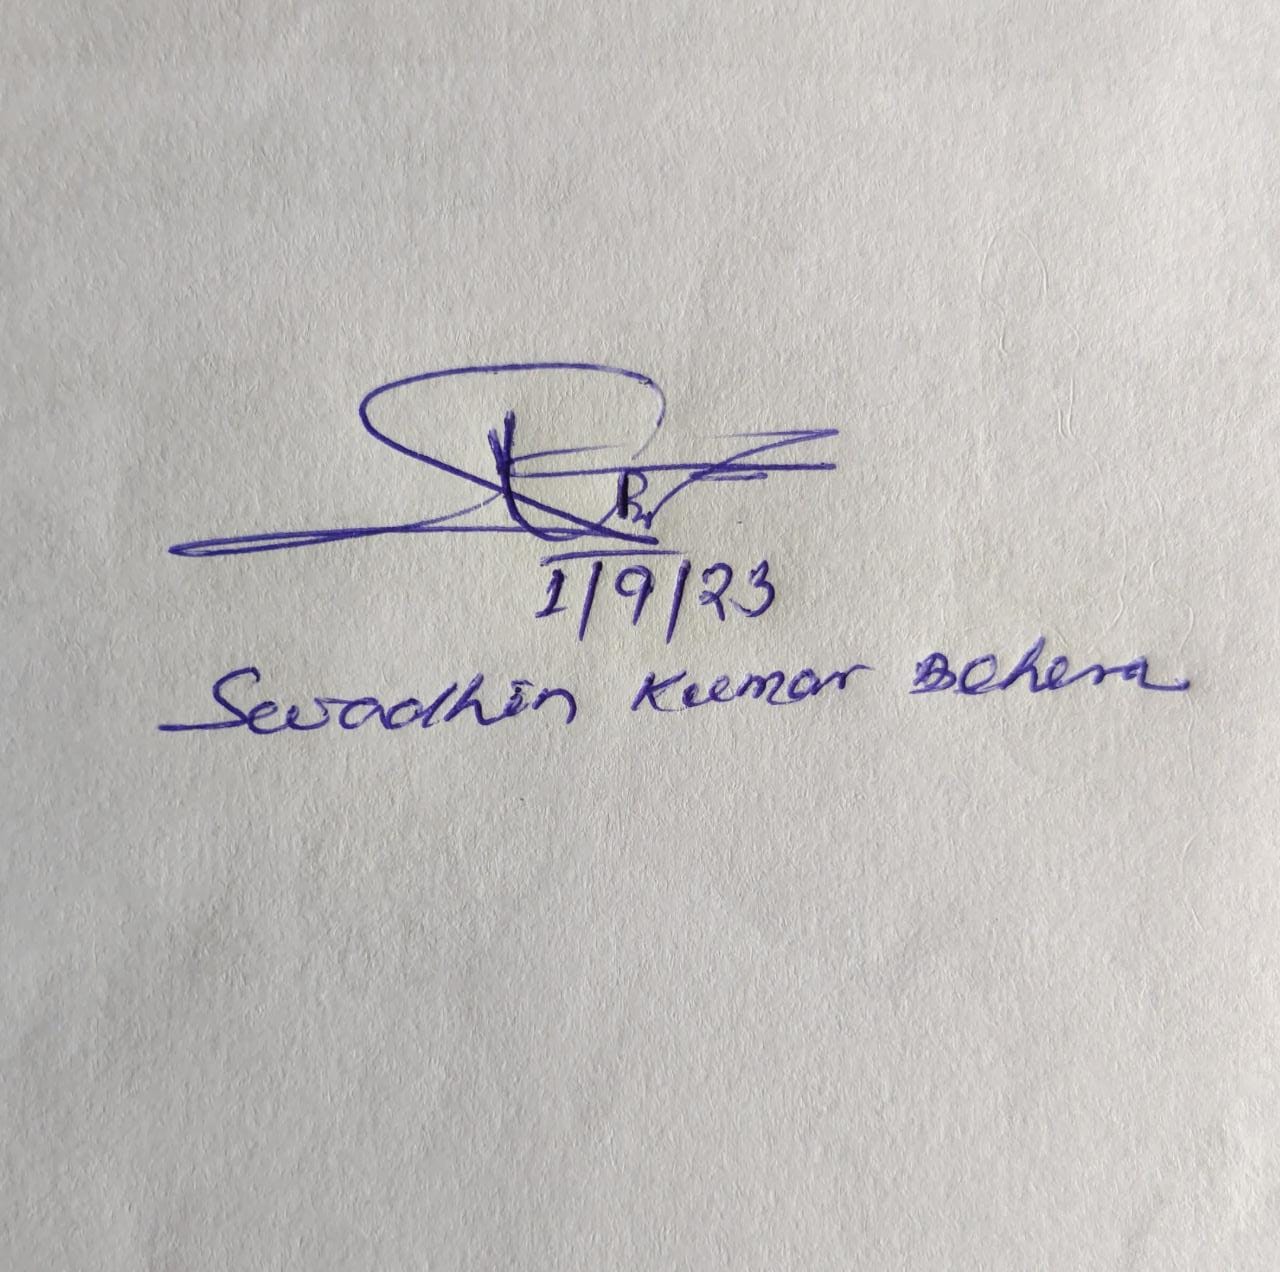 1/9/23
Swadhin Kumar Behera